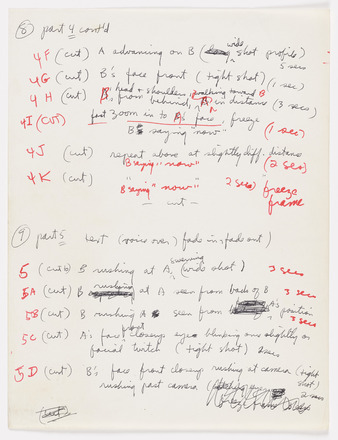 ⑧ part 4 cont'd
4F (cut) A advancing on B (wide shot profile) 5 secs
4G (cut) B's face front (tight shot) (1 sec)
4H (cut) B, head + shoulders from behind, A walking toward B in distance (3 sec)
4I (CUT) fast zoom in to A's face, freeze
B saying "now" (1 sec)
4J (cut) repeat above at slightly diff. distance
B saying "now" (2 sec)
4K (cut) B saying "now" 2 sec) freeze frame
— cut —
⑨ part 5 text (voice over) fade in, fade out)
5 (cut) B rushing at A, (wide shot) 3 sec
5A (cut) B rushing at A seen from back of B 3 sec
5B (cut) B rushing A seen from A's position 3 sec
5C (cut) A's face front closeup eyes blinking or slightly
facial twitch (tight shot) 2 secs
5D (cut) B's face front closeup rushing at camera (tight shot)
rushing past camera 2 secs